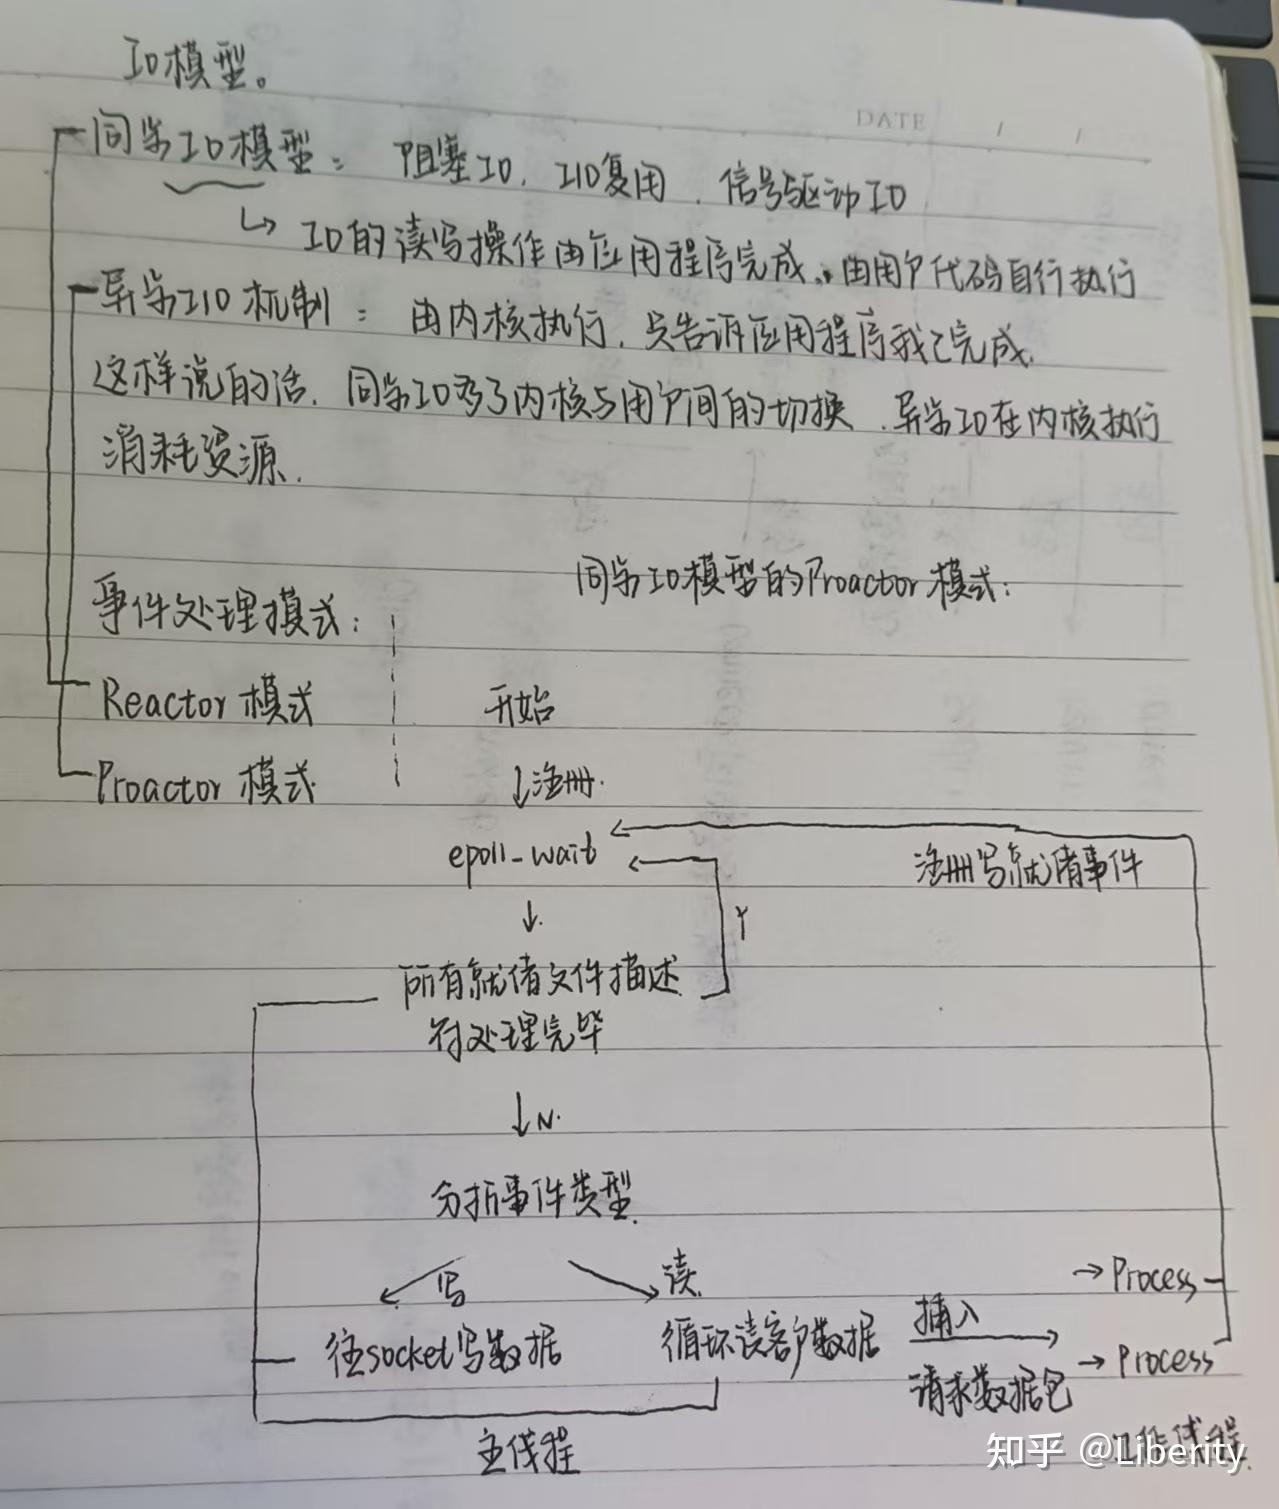 IO模型。
DATE / /
同步IO模型: 阻塞IO, I/O复用, 信号驱动IO
↳ IO的读写操作由应用程序完成, 由用户代码自行执行
异步I/O机制: 由内核执行, 只告诉应用程序我已完成.
这样说的话, 同步IO多了内核与用户间的切换, 异步IO在内核执行
消耗资源.
同步IO模型的Proactor模式:
事件处理模式:
Reactor模式
Proactor模式
开始
↓注册.
epoll-wait
注册写就绪事件
↓
Y
所有就绪文件描述
符处理完毕
↓N.
分析事件类型
写 读
往socket写数据
循环读客户数据
插入
请求数据包
→Process
→Process
主线程
工作线程
知乎 @Liberity